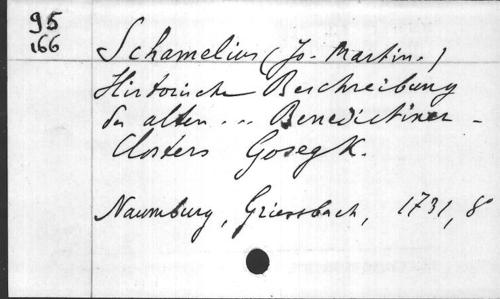 95
166
Schamelius (Jo. Martin.)
Historische Beschreibung
der alten ... Benedictiner-
Closters Gosegk.
Naumburg, Griessbach, 1731, 8°